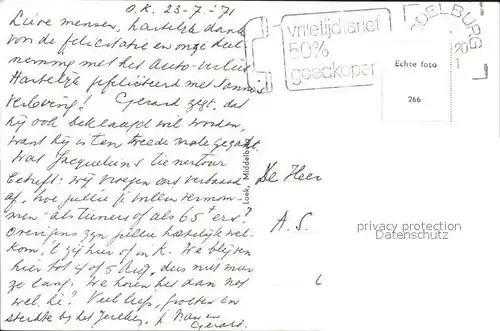 O.K. 23-7.-'71
Lieve mensen, hartelijk dank
voor de felicitatie en onze deel
neming met het Auto-verlies
Hartelijk gefeliciteerd met
verloving! Gerard zegt, dat
hij ook beklaagd wil worden,
want hij is ten tweede male
Wat Jacqueline's tienertour
betreft: wij vroegen ons verbaasd
af, hoe jullie je willen vermom-
men: als tieners of als 65+ ers?
Overigens zijn jullie hartelijk wel-
kom, 't zij hier of in K. We blijven
hier tot 4 of 5 Aug, dus niet meer
zo lang. We horen het dan nog
wel. hè? Veel liefs, groeten en
sterkte bij het
Gerard.
vrijetijdtarief
50%
goedkoper
DDELBURG
Echte foto
266
Loek, Middelburg
De Heer
A. S.
privacy protection
Datenschutz